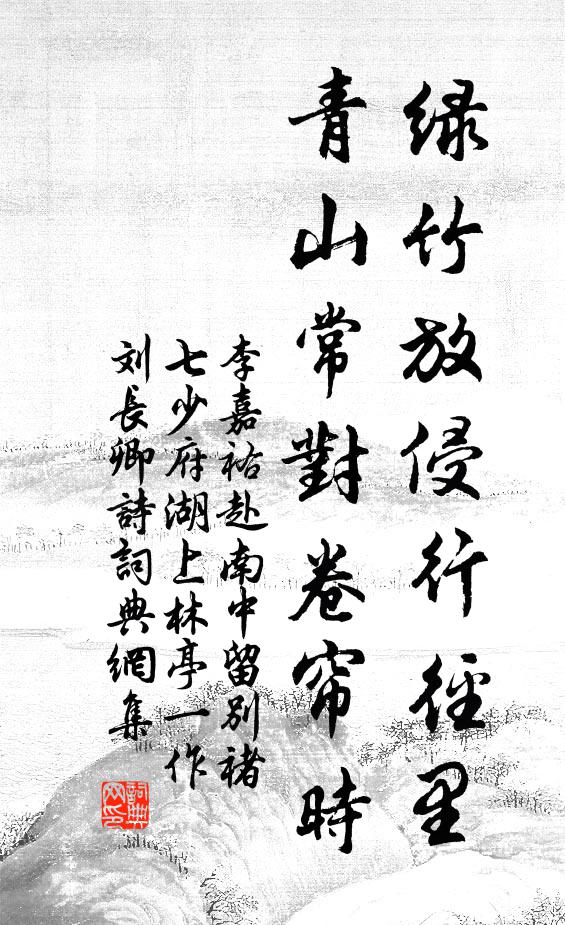 绿竹放侵行径里
青山常對卷帘時
李嘉祐赴南中留別褚
七少府湖上林亭一作
刘長卿詩詞典網集
詞典
网印